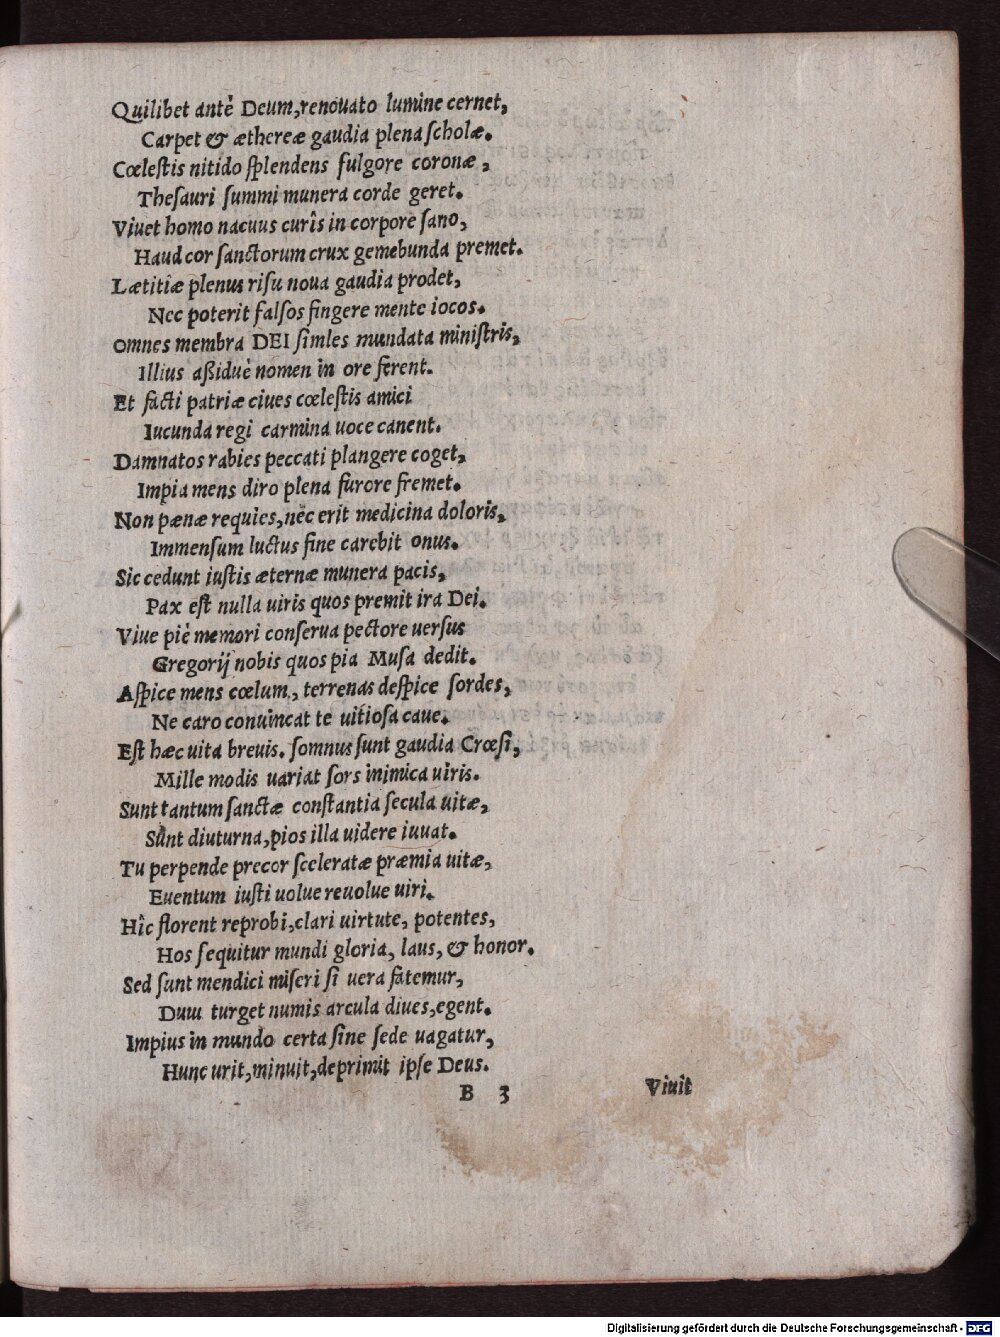 Quilibet antè Deum, renouato lumine cernet,
Carpet & æthereæ gaudia plena ſcholæ.
Cœleſtis nitido ſplendens fulgore coronæ,
Theſauri ſummi munera corde geret.
Viuet homo nacuus curîs in corpore ſano,
Haud cor ſanctorum crux gemebunda premet.
Lætitiæ plenus riſu noua gaudia prodet,
Nec poterit falſos fingere mente iocos.
Omnes membra DEI ſimles mundata miniſtris,
Illius aßiduè nomen in ore ferent.
Et facti patriæ ciues cœleſtis amici
Iucunda regi carmina uoce canent.
Damnatos rabies peccati plangere coget,
Impia mens diro plena furore fremet.
Non pænæ requies, nec erit medicina doloris,
Immenſum luctus fine carebit onus.
Sic cedunt iuſtis æternæ munera pacis,
Pax eſt nulla uiris quos premit ira Dei.
Viue piè memori conſerua pectore uerſus
Gregorij nobis quos pia Muſa dedit.
Aſpice mens cœlum, terrenas deſpice ſordes,
Ne caro conuincat te uitioſa caue.
Eſt hæc uita breuis. ſomnus ſunt gaudia Crœſi,
Mille modis uariat ſors inimica uiris.
Sunt tantum ſanctæ conſtantia ſecula uitæ,
Sunt diuturna, pios illa uidere iuuat.
Tu perpende precor ſceleratæ præmia uitæ,
Euentum iuſti uolue reuolue uiri.
Hîc florent reprobi, clari uirtute, potentes,
Hos ſequitur mundi gloria, laus, & honor.
Sed ſunt mendici miſeri ſi uera fatemur,
Dum turget numis arcula diues, egent.
Impius in mundo certa ſine ſede uagatur,
Hunc urit, minuit, deprimit ipſe Deus.
B 3 Viuit
Digitalisierung gefördert durch die Deutsche Forschungsgemeinschaft - DFG